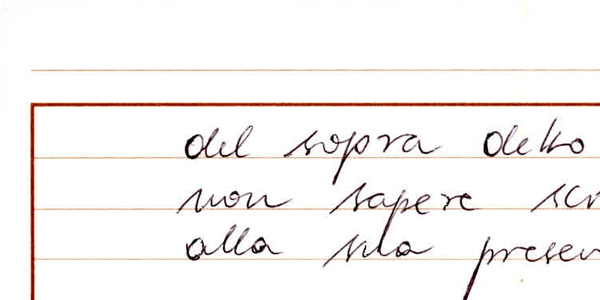 del sopra detto
non sapere scr
alla sua presen